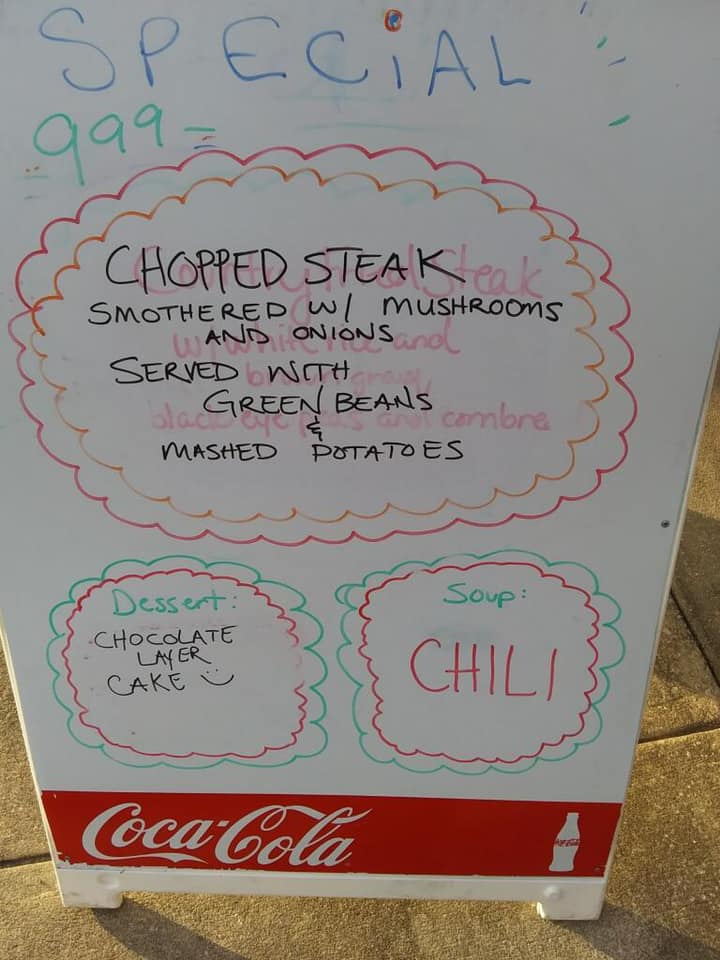 SPECiAL
999
CHOPPED STEAK
SMOTHERED W/ MUSHROOMS
AND ONIONS
SERVED WITH
GREEN BEANS
&
MASHED POTATOES
Dessert:
CHOCOLATE
LAYER
CAKE
Soup:
CHILI
Coca-Cola